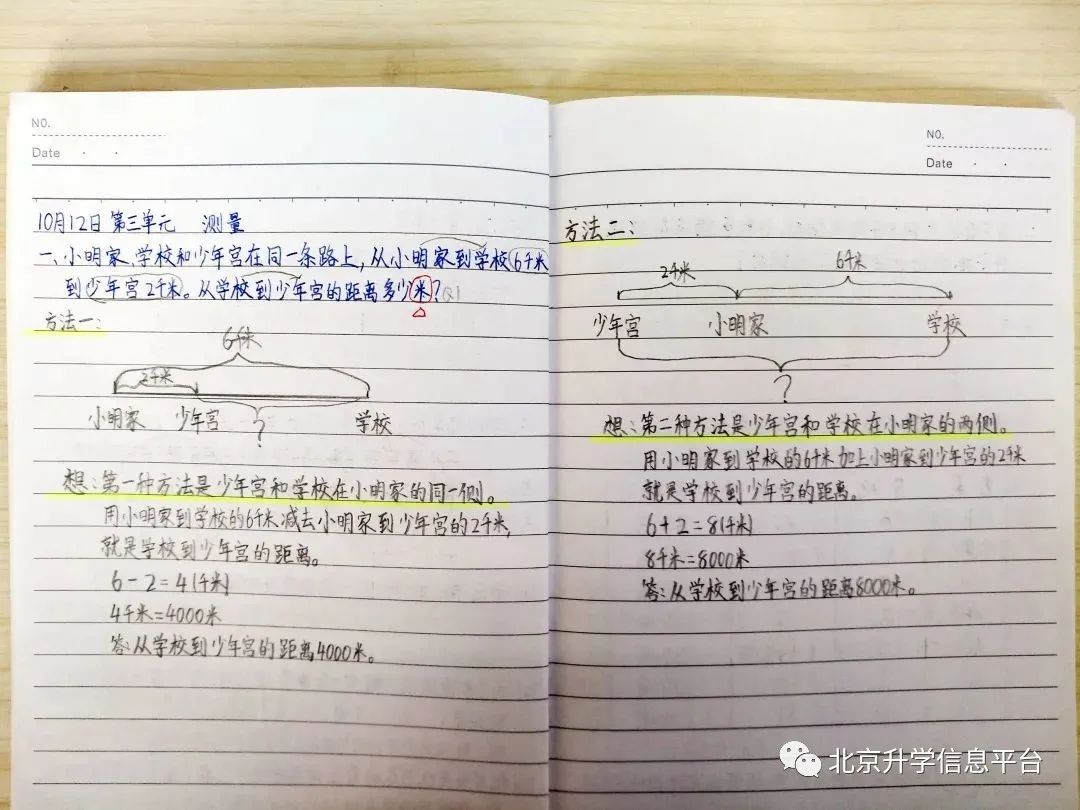 NO.
Date
10月12日 第三单元 测量
一、小明家、学校和少年宫在同一条路上,从小明家到学校6千米
到少年宫2千米。从学校到少年宫的距离多少米?
方法一:
6千米
2千米
小明家 少年宫 ? 学校
想:第一种方法是少年宫和学校在小明家的同一侧。
用小明家到学校的6千米减去小明家到少年宫的2千米,
就是学校到少年宫的距离。
6-2=4(千米)
4千米=4000米
答:从学校到少年宫的距离4000米。
NO.
Date
方法二:
2千米 6千米
少年宫 小明家 学校
?
想:第二种方法是少年宫和学校在小明家的两侧。
用小明家到学校的6千米加上小明家到少年宫的2千米
就是学校到少年宫的距离。
6+2=8(千米)
8千米=8000米
答:从学校到少年宫的距离8000米。
北京升学信息平台